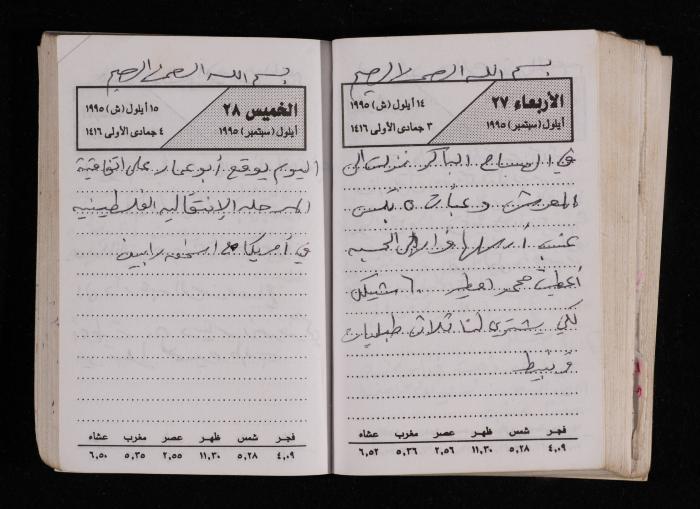 بسم الله الرحمن الرحيم
الأربعاء ٢٧
أيلول (سبتمبر) ١٩٩٥
١٤ أيلول (ش) ١٩٩٥
٣ جمادى الأولى ١٤١٦
في الصباح الباكر نزلت الى
المعرش وعبأت ٥ بكس
عنب أرسلها فؤاد الى الحسبه
أعطيت محمد ٦٠ شيكل
لكي يشتري لنا ثلاث طبليات
قرنبيط
فجر شمس ظهر عصر مغرب عشاء
٤,٠٩ ٥,٢٨ ١١,٣٠ ٢,٥٦ ٥,٣٦ ٦,٥٢
بسم الله الرحمن الرحيم
الخميس ٢٨
أيلول (سبتمبر) ١٩٩٥
١٥ أيلول (ش) ١٩٩٥
٤ جمادى الأولى ١٤١٦
اليوم يوقع أبو عمار على اتفاقية
المرحله الإنتقاليه الفلسطينيه
في أمريكا مع اسحق رابين
فجر شمس ظهر عصر مغرب عشاء
٤,٠٩ ٥,٢٨ ١١,٣٠ ٢,٥٥ ٥,٣٥ ٦,٥٠